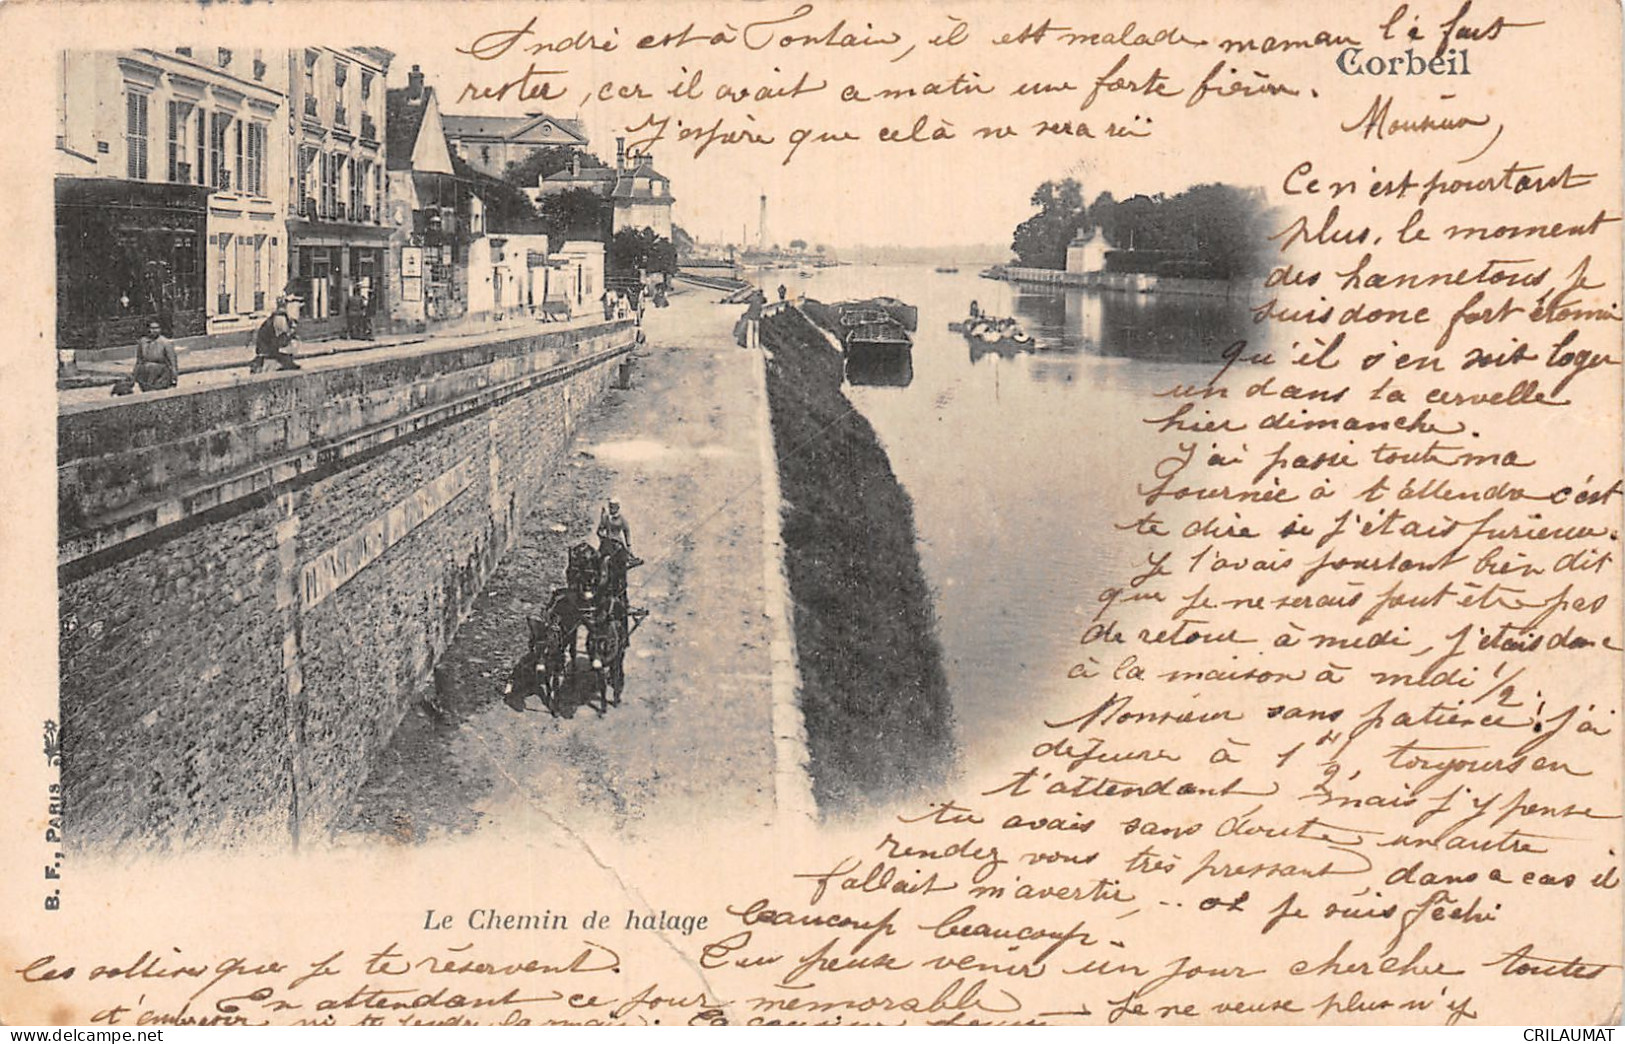 André est à Toulain, il est malade maman l'a fait
rester, car il avait ce matin une forte fièvre.
J'espère que celà ne sera rii
Corbeil
Ce n'est pourtant
plus, le moment
des hannetons, je
suis donc fort étonné
qu'il s'en soit logé
un dans ta cervelle
hier dimanche.
J'ai passé toute ma
journée à t'attendre c'est
te dire si j'étais furieux.
Je t'avais pourtant bien dit
que je ne serais peut être pas
de retour à midi, j'étais donc
à la maison à midi 1/2
Monsieur sans patience! j'ai
déjeuner à 1 H 1/2, toujours en
t'attendant, mais j'y pense
tu avais sans doute un autre
rendez vous très pressant, dans ce cas il
fallait m'avertir, .. oh je suis fâché
beaucoup beaucoup.
Tu peux venir un jour chercher toutes
les sottises que je te réservent.
En attendant ce jour mémorable — Je ne veux plus n'y
t'embrasser ni te tendre la main.
Le Chemin de halage
B. F., PARIS
CRILAUMAT